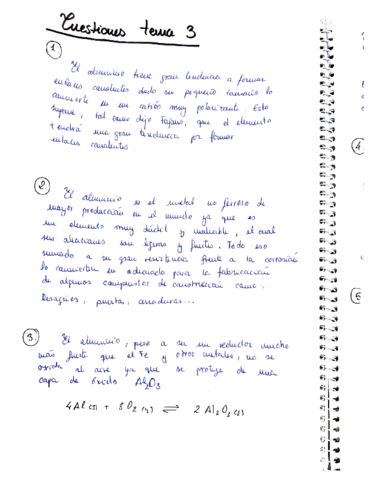 Cuestiones tema 3
1.
El aluminio tiene gran tendencia a formar
enlaces covalentes dado su pequeño tamaño lo
convierte en un catión muy polarizante. Esto
supone, tal como dijo Fajans, que el elemento
tendrá una gran tendencia por formar
enlaces covalentes.
2.
El aluminio es el metal no ferroso de
mayor producción en el mundo ya que es
un elemento muy dúctil y maleable, el cual
sus aleaciones son ligeras y fuertes. Todo eso
sumado a su gran resistencia frente a la corrosión
lo convierten en adecuado para la fabricación
de algunos compuestos de construcción como:
Desagües, puertas, cerraduras...
3.
El aluminio, pese a ser un reductor mucho
más fuerte que el Fe y otros metales, no se
oxida al aire ya que se protege de una
capa de óxido Al2O3
4Al(s) + 8O2(g) ⇌ 2Al2O3(s)
4